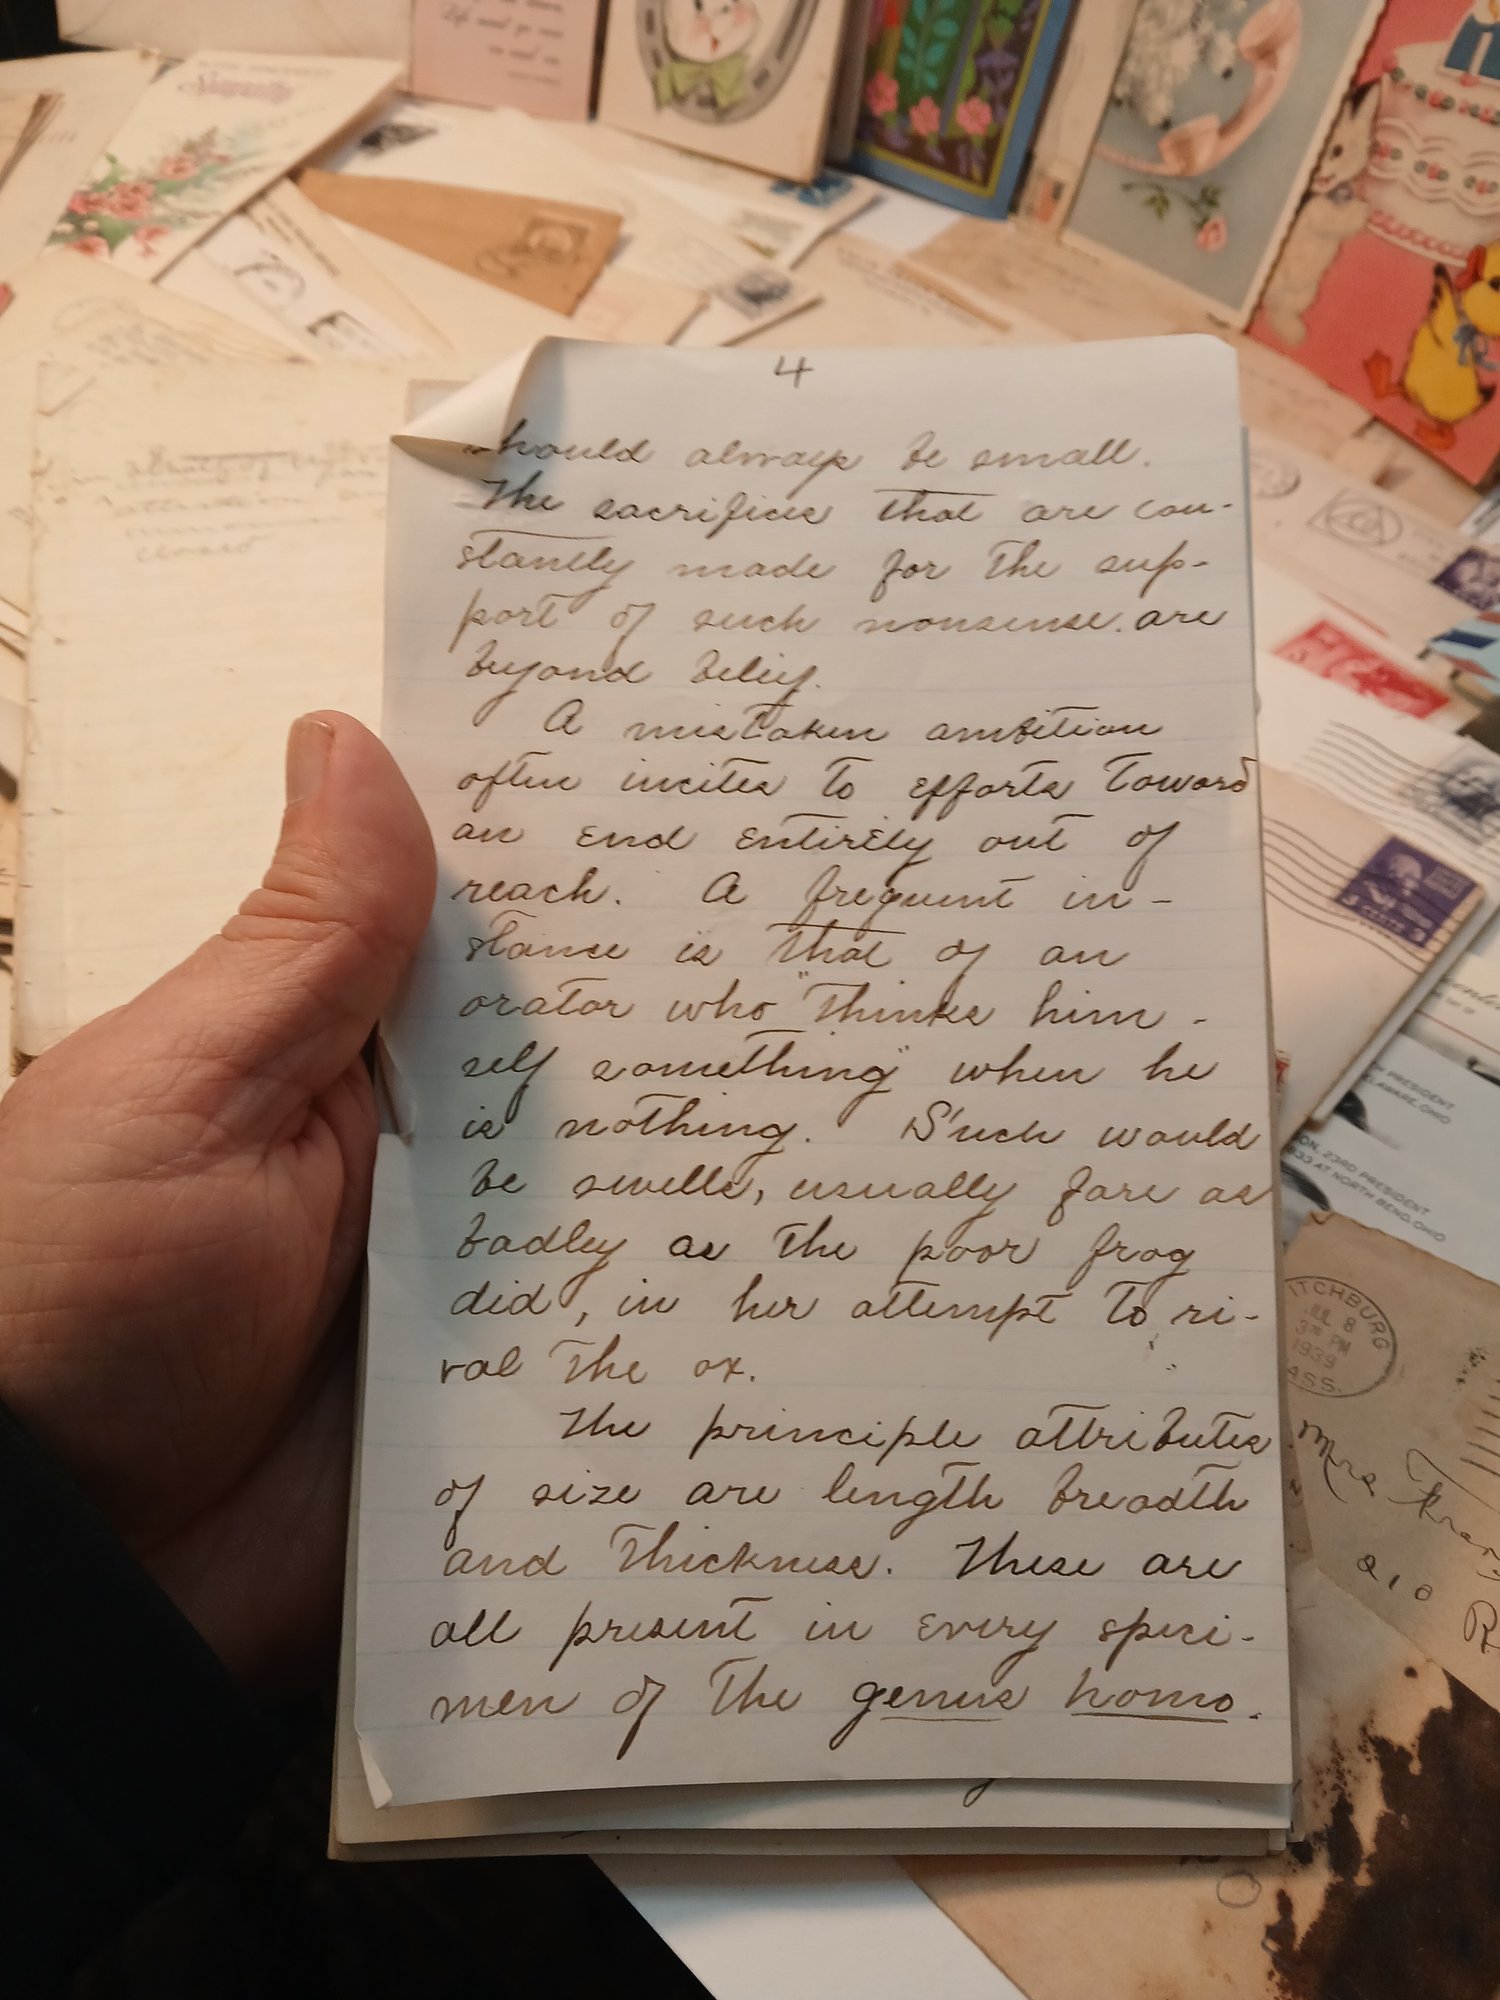 4
should always be small.
The sacrifices that are con-
stantly made for the sup-
port of such nonsense. are
beyond belief.
A mistaken ambition
often incites to efforts toward
an end entirely out of
reach. A frequent in-
stance is that of an
orator who "thinks him-
self something" when he
is nothing. Such would
be swells, usually fare as
badley as the poor frog
did, in her attempt to ri-
val the ox.
The principle attributes
of size are length breadth
and thickness. These are
all present in every speci-
men of the genus homo.
Sympathy
closed
3 CENTS 3
PRESIDENT
DELAWARE, OHIO
ON, 23RD PRESIDENT
1833 AT NORTH BEND, OHIO
ITCHBURG
JUL 8
3 30 PM
1939
ASS.
Mrs
210
R